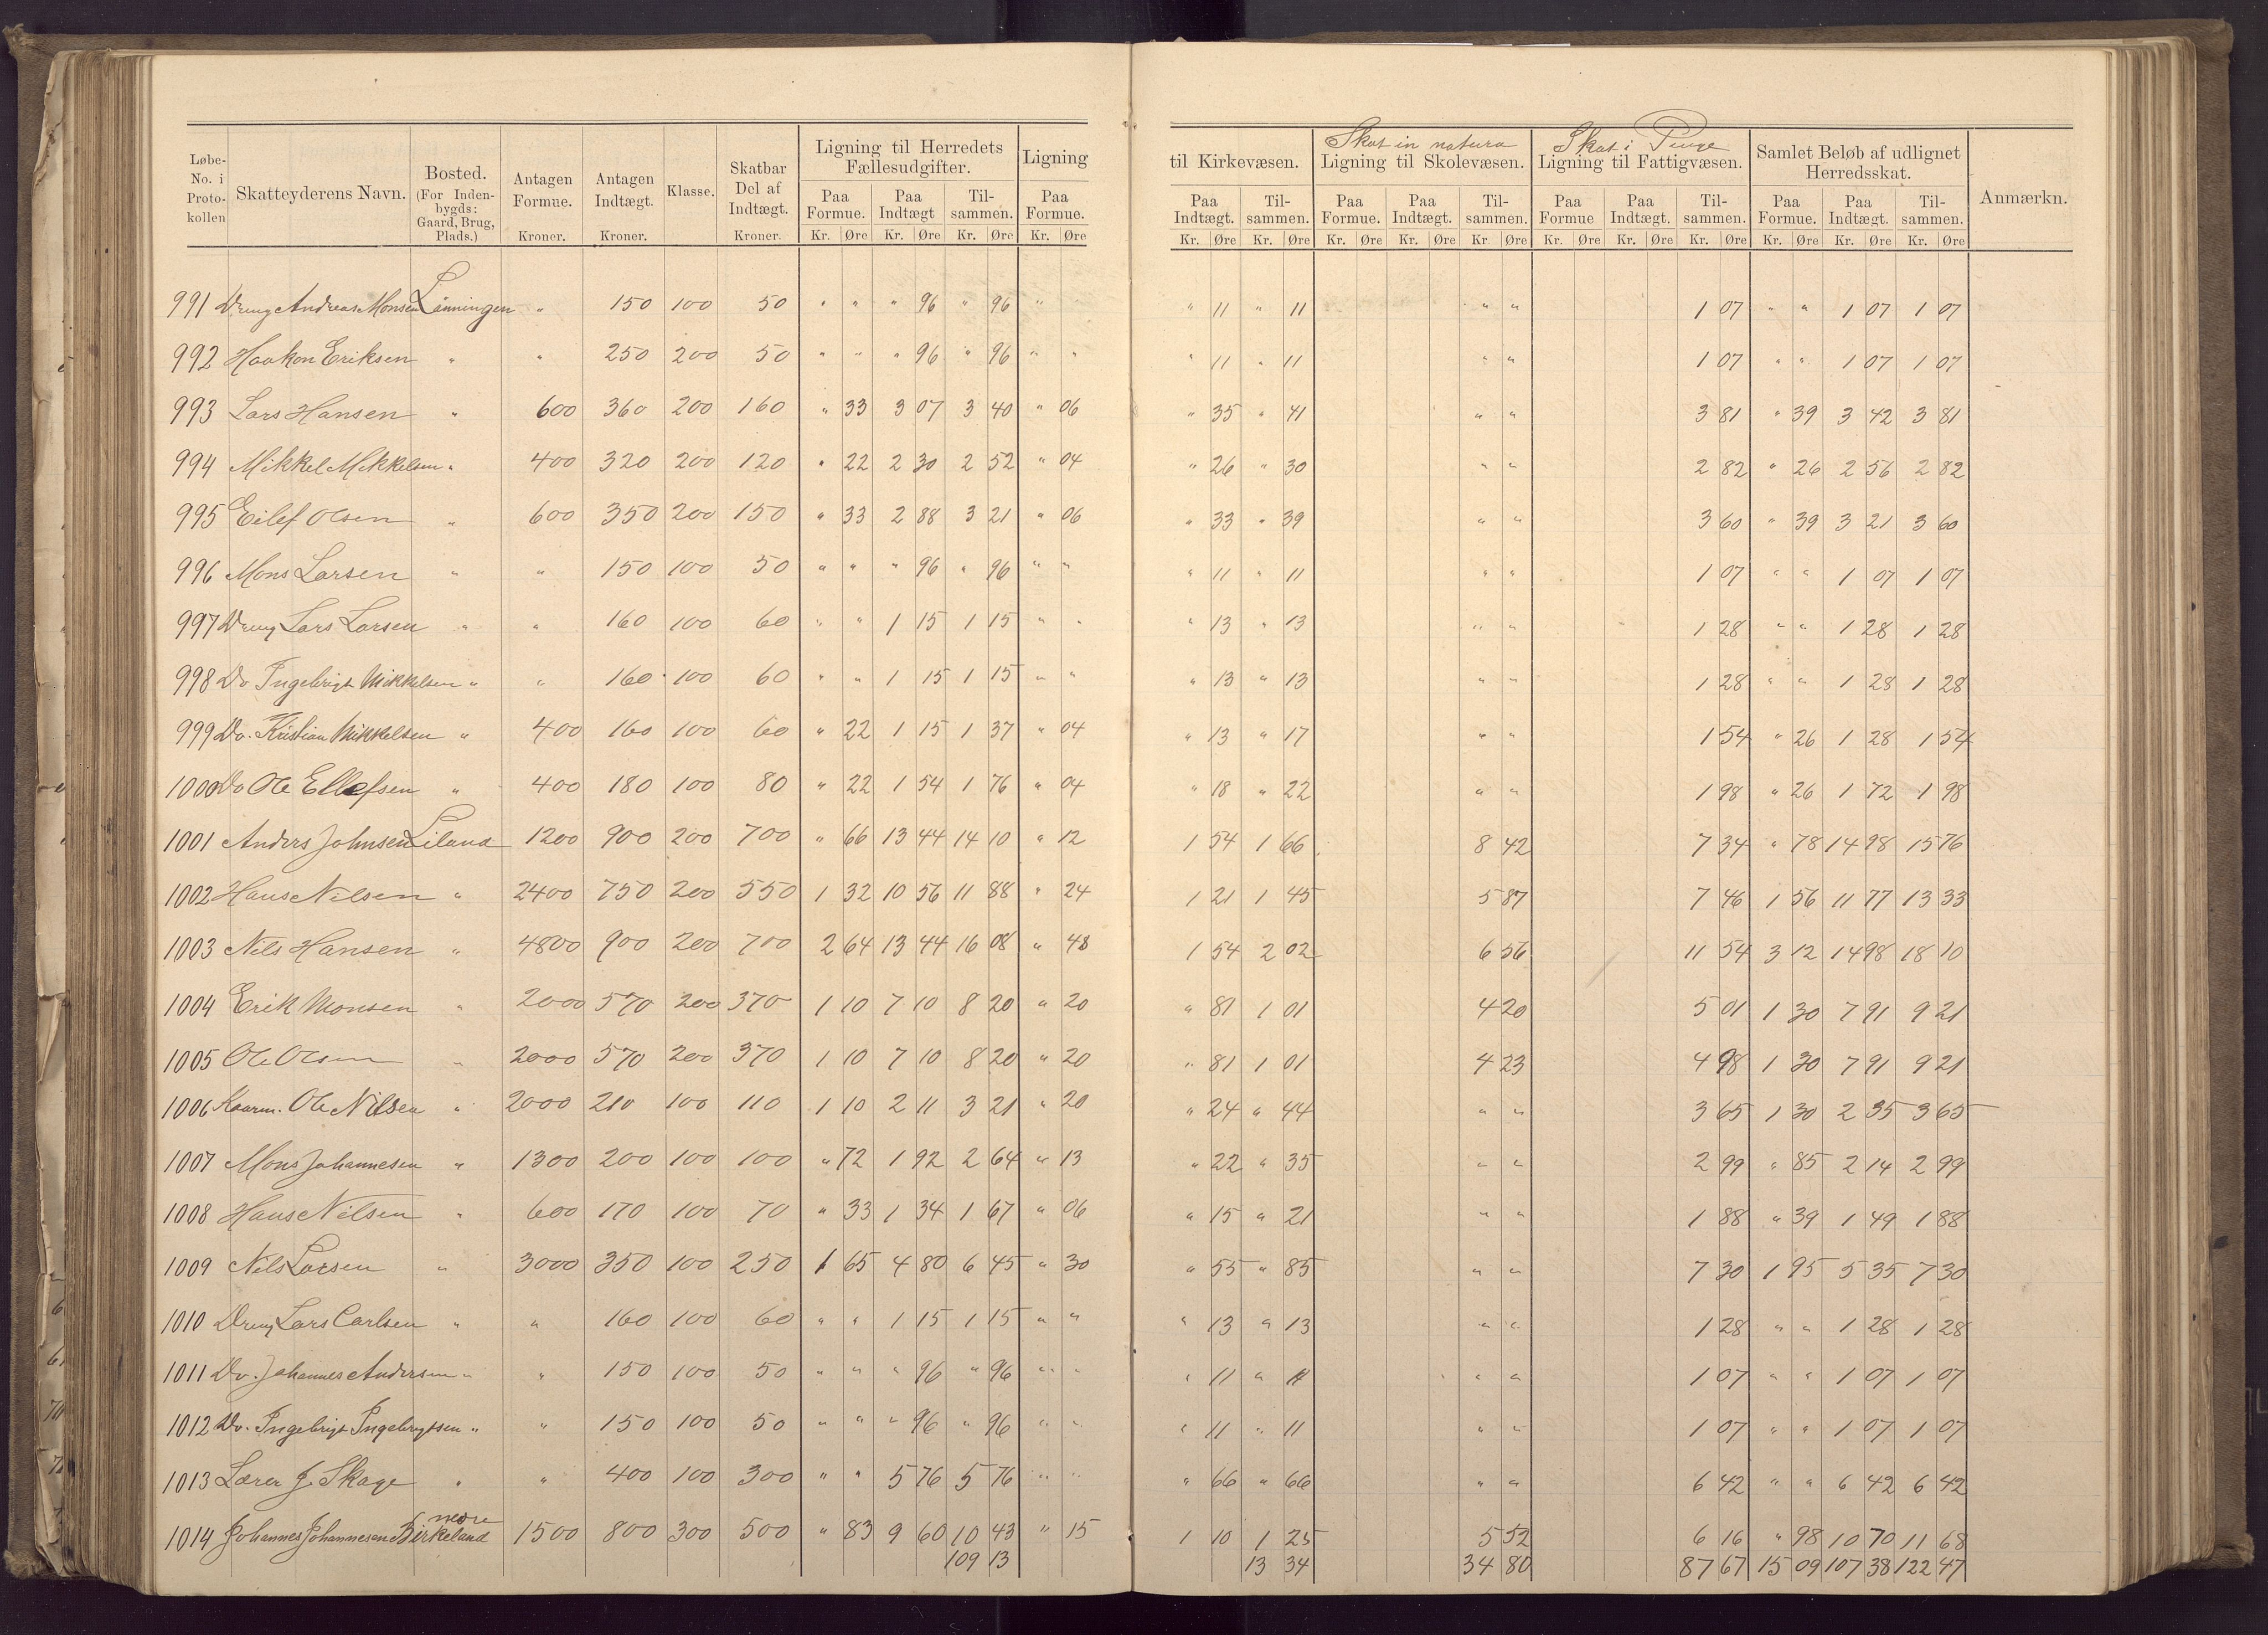 Løbe-No. i Proto-kollen | Skatteyderens Navn. | Bosted. (For Inden-bygds: Gaard, Brug, Plads.) | Antagen Formue. Kroner. | Antagen Indtægt. Kroner. | Klasse. | Skatbar Del af Indtægt. Kroner. | Ligning til Herredets Fællesudgifter. Paa Formue. Kr. Øre | Paa Indtægt Kr. Øre | Til-sammen. Kr. Øre | Ligning Paa Formue. Kr. Øre | til Kirkevæsen. Paa Indtægt. Kr. Øre | Til-sammen. Kr. Øre | Skat in natura Ligning til Skolevæsen. Paa Formue. Kr. Øre | Paa Indtægt. Kr. Øre | Til-sammen. Kr Øre | Skat i Penge Ligning til Fattigvæsen. Paa Formue Kr. Øre | Paa Indtægt. Kr. Øre | Til-sammen. Kr. Øre | Samlet Beløb af udlignet Herredsskat. Paa Formue. Kr. Øre | Paa Indtægt. Kr. Øre | Til-sammen. Kr. Øre | Anmærkn.
991 Dreng Andreas Monsen Lønningen " 150 100 50 " " " 96 " 96 " " 11 " 11 " " 1 07 " " 1 07 1 07
992 Haakon Eriksen " " 250 200 50 " " " 96 " 96 " " " 11 " 11 " " 1 07 " " 1 07 1 07
993 Lars Hansen " 600 360 200 160 " 33 3 07 3 40 " 06 " 35 " 41 " " 3 81 " 39 3 42 3 81
994 Mikkel Mikkelsen " 400 320 200 120 " 22 2 30 2 52 " 04 " 26 " 30 " " 2 82 " 26 2 56 2 82
995 Eilef Olsen " 600 350 200 150 " 33 2 88 3 21 " 06 " 33 " 39 " " 3 60 " 39 3 21 3 60
996 Mons Larsen " " 150 100 50 " " " 96 " 96 " " " 11 " 11 " " 1 07 " " 1 07 1 07
997 Dreng Lars Larsen " " 160 100 60 " " 1 15 1 15 " " " 13 " 13 " " 1 28 " " 1 28 1 28
998 Do Ingebrigt Mikkelsen " " 160 100 60 " " 1 15 1 15 " " " 13 " 13 " " 1 28 " " 1 28 1 28
999 Do. Kristian Mikkelsen " 400 160 100 60 " 22 1 15 1 37 " 04 " 13 " 17 " " 1 54 " 26 1 28 1 54
1000 Do Ole Ellefsen " 400 180 100 80 " 22 1 54 1 76 " 04 " 18 " 22 " " 1 98 " 26 1 72 1 98
1001 Anders Johnsen Liland 1200 900 200 700 " 66 13 44 14 10 " 12 1 54 1 66 8 42 7 34 " 78 14 98 15 76
1002 Hans Nilsen " 2400 750 200 550 1 32 10 56 11 88 " 24 1 21 1 45 5 87 7 46 1 56 11 77 13 33
1003 Nils Hansen " 4800 900 200 700 2 64 13 44 16 08 " 48 1 54 2 02 6 56 11 54 3 12 14 98 18 10
1004 Erik Monsen " 2000 570 200 370 1 10 7 10 8 20 " 20 " 81 1 01 4 20 5 01 1 30 7 91 9 21
1005 Ole Olsen " 2000 570 200 370 1 10 7 10 8 20 " 20 " 81 1 01 4 23 4 98 1 30 7 91 9 21
1006 Kaarm. Ole Nilsen " 2000 210 100 110 1 10 2 11 3 21 " 20 " 24 " 44 " " 3 65 1 30 2 35 3 65
1007 Mons Johannesen " 1300 200 100 100 " 72 1 92 2 64 " 13 " 22 " 35 " " 2 99 " 85 2 14 2 99
1008 Hans Nilsen " 600 170 100 70 " 33 1 34 1 67 " 06 " 15 " 21 " " 1 88 " 39 1 49 1 88
1009 Nils Larsen " 3000 350 100 250 1 65 4 80 6 45 " 30 " 55 " 85 " " 7 30 1 95 5 35 7 30
1010 Dreng Lars Carlsen " " 160 100 60 " " 1 15 1 15 " " " 13 " 13 " " 1 28 " " 1 28 1 28
1011 Do. Johannes Andersen " " 150 100 50 " " " 96 " 96 " " " 11 " 11 " " 1 07 " " 1 07 1 07
1012 Do. Ingebrigt Ingebrigtsen " " 150 100 50 " " " 96 " 96 " " " 11 " 11 " " 1 07 " " 1 07 1 07
1013 Lærer J. Skage " " 400 100 300 " " 5 76 5 76 " " " 66 " 66 " " 6 42 " " 6 42 6 42
1014 Johannes Johannesen nedre Birkeland 1500 800 300 500 " 83 9 60 10 43 " 15 1 10 1 25 5 52 6 16 " 98 10 70 11 68
109 13 13 34 34 80 87 67 15 09 107 38 122 47